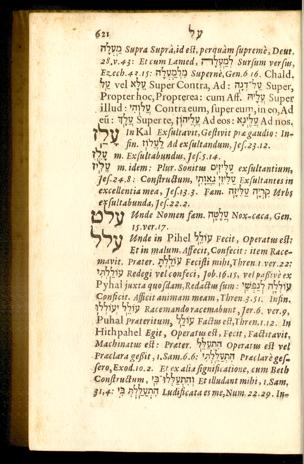 621 על
מַעְלָה Supra Suprà, id est, perquàm supremè, Deut.
28, v. 43: Et cum Lamed, לְמַעְלָה Sursum versus,
Ezech. 43. 15: מִלְמַעְלָה Supernè, Gen. 6 16. Chald.
עַל vel עֲלָא Super Contra, Ad: Super,
Propter hoc, Propterea: cum Aff. עֲלֹהִי Super
illud: Contra eum, super eum, in eo, Ad
eũ: Super te, Ad eos: Ad nos.
עלז In Kal Exsultavit, Gestivit præ gaudio: In-
fin. לַעֲלוֹז Ad exsultandum, Jes. 23. 12.
עָלֵז m. Exsultabundus, Jes. 5. 14.
עַלִּיז m. idem: Plur. Sonitus עַלִּיזִים exsultantium,
Jes. 24. 8: Constructum, עַלִּיזֵי גַאֲוָתִי Exsultantes in
excellentia mea, Jes. 13. 3. Fam. קִרְיָה עַלִּיזָה Urbs
exsultabunda, Jes. 22. 2.
עלט Unde Nomen fam. עֲלָטָה Nox-cæca, Gen.
15. ver. 17.
עלל Unde in Pihel עוֹלֵל Fecit, Operatus est:
Et in malum. Affecit, Confecit: item Race-
mavit. Præter. עוֹלַלְתָּ Fecisti misi, Thren. 1. ver. 22:
עוֹלַלְתִּי Redegi vel confeci, Job. 16. 15, vel passivè ex
Pyhal juxta quosdam, Redactus sum: עוֹלְלָה לְנַפְשִׁי
Conficit. Afficit animam meam, Thren. 3. 51. Infin.
עוֹלֵל יְעוֹלְלוּ Racemando racemabunt, Jer. 6. ver. 9,
Puhal Præteritum, עוֹלַל Factus est, Thren. 1. 12. In
Hithpahel Egit, Operatus est, Fecit, Factitavit,
Machinatus est: Præter. הִתְעַלֵּל Operatus est vel
Præclara gessit, 1. Sam. 6. 6: הִתְעַלַּלְתִּי Præclarè ges-
sero, Exod. 10. 2. Et ex alia significatione, cum Beth
Constructum, וְהִתְעַלְּלוּ־בִי Et illudant mihi, 1. Sam.
31, 4: הִתְעַלַּלְתְּ בִּי Ludificata es me, Num. 22. 29. In-